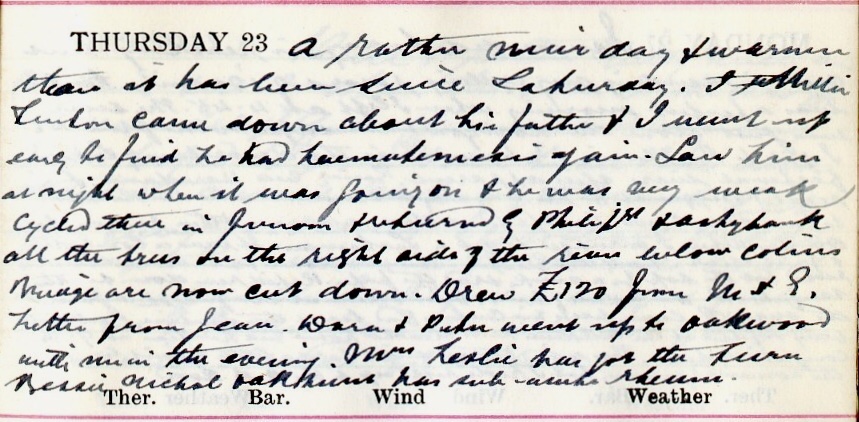 THURSDAY 23 A rather nicer day & warmer
than it has been since Saturday. J
came down about his father & I went up
early to find he had haematemesis again. Saw him
at night when it was going on & he was very weak
Cycled there in & returned by & ashybank
all the trees on the right side of the river below Colins
Bridge are now cut down. Drew £120 from M & E.
Letter from Jean. Dora & Peter went up to Oakwood
with me in the evening. Mrs Leslie has got the
Bessie Nichol has sub-acute rheum.
Ther. Bar. Wind Weather